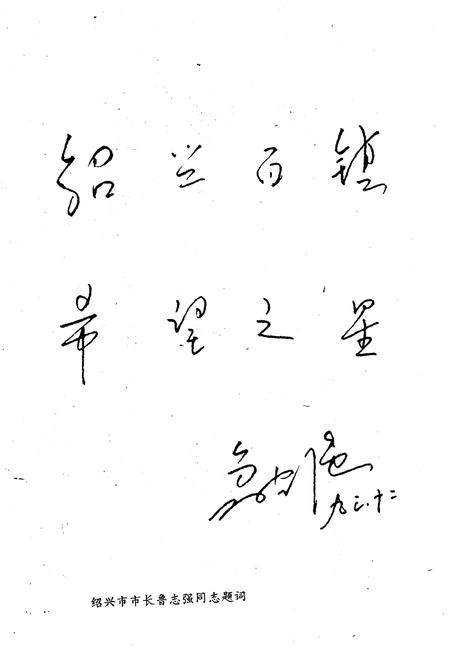 绍兴百镇
希望之星
九三.十二
绍兴市市长鲁志强同志题词